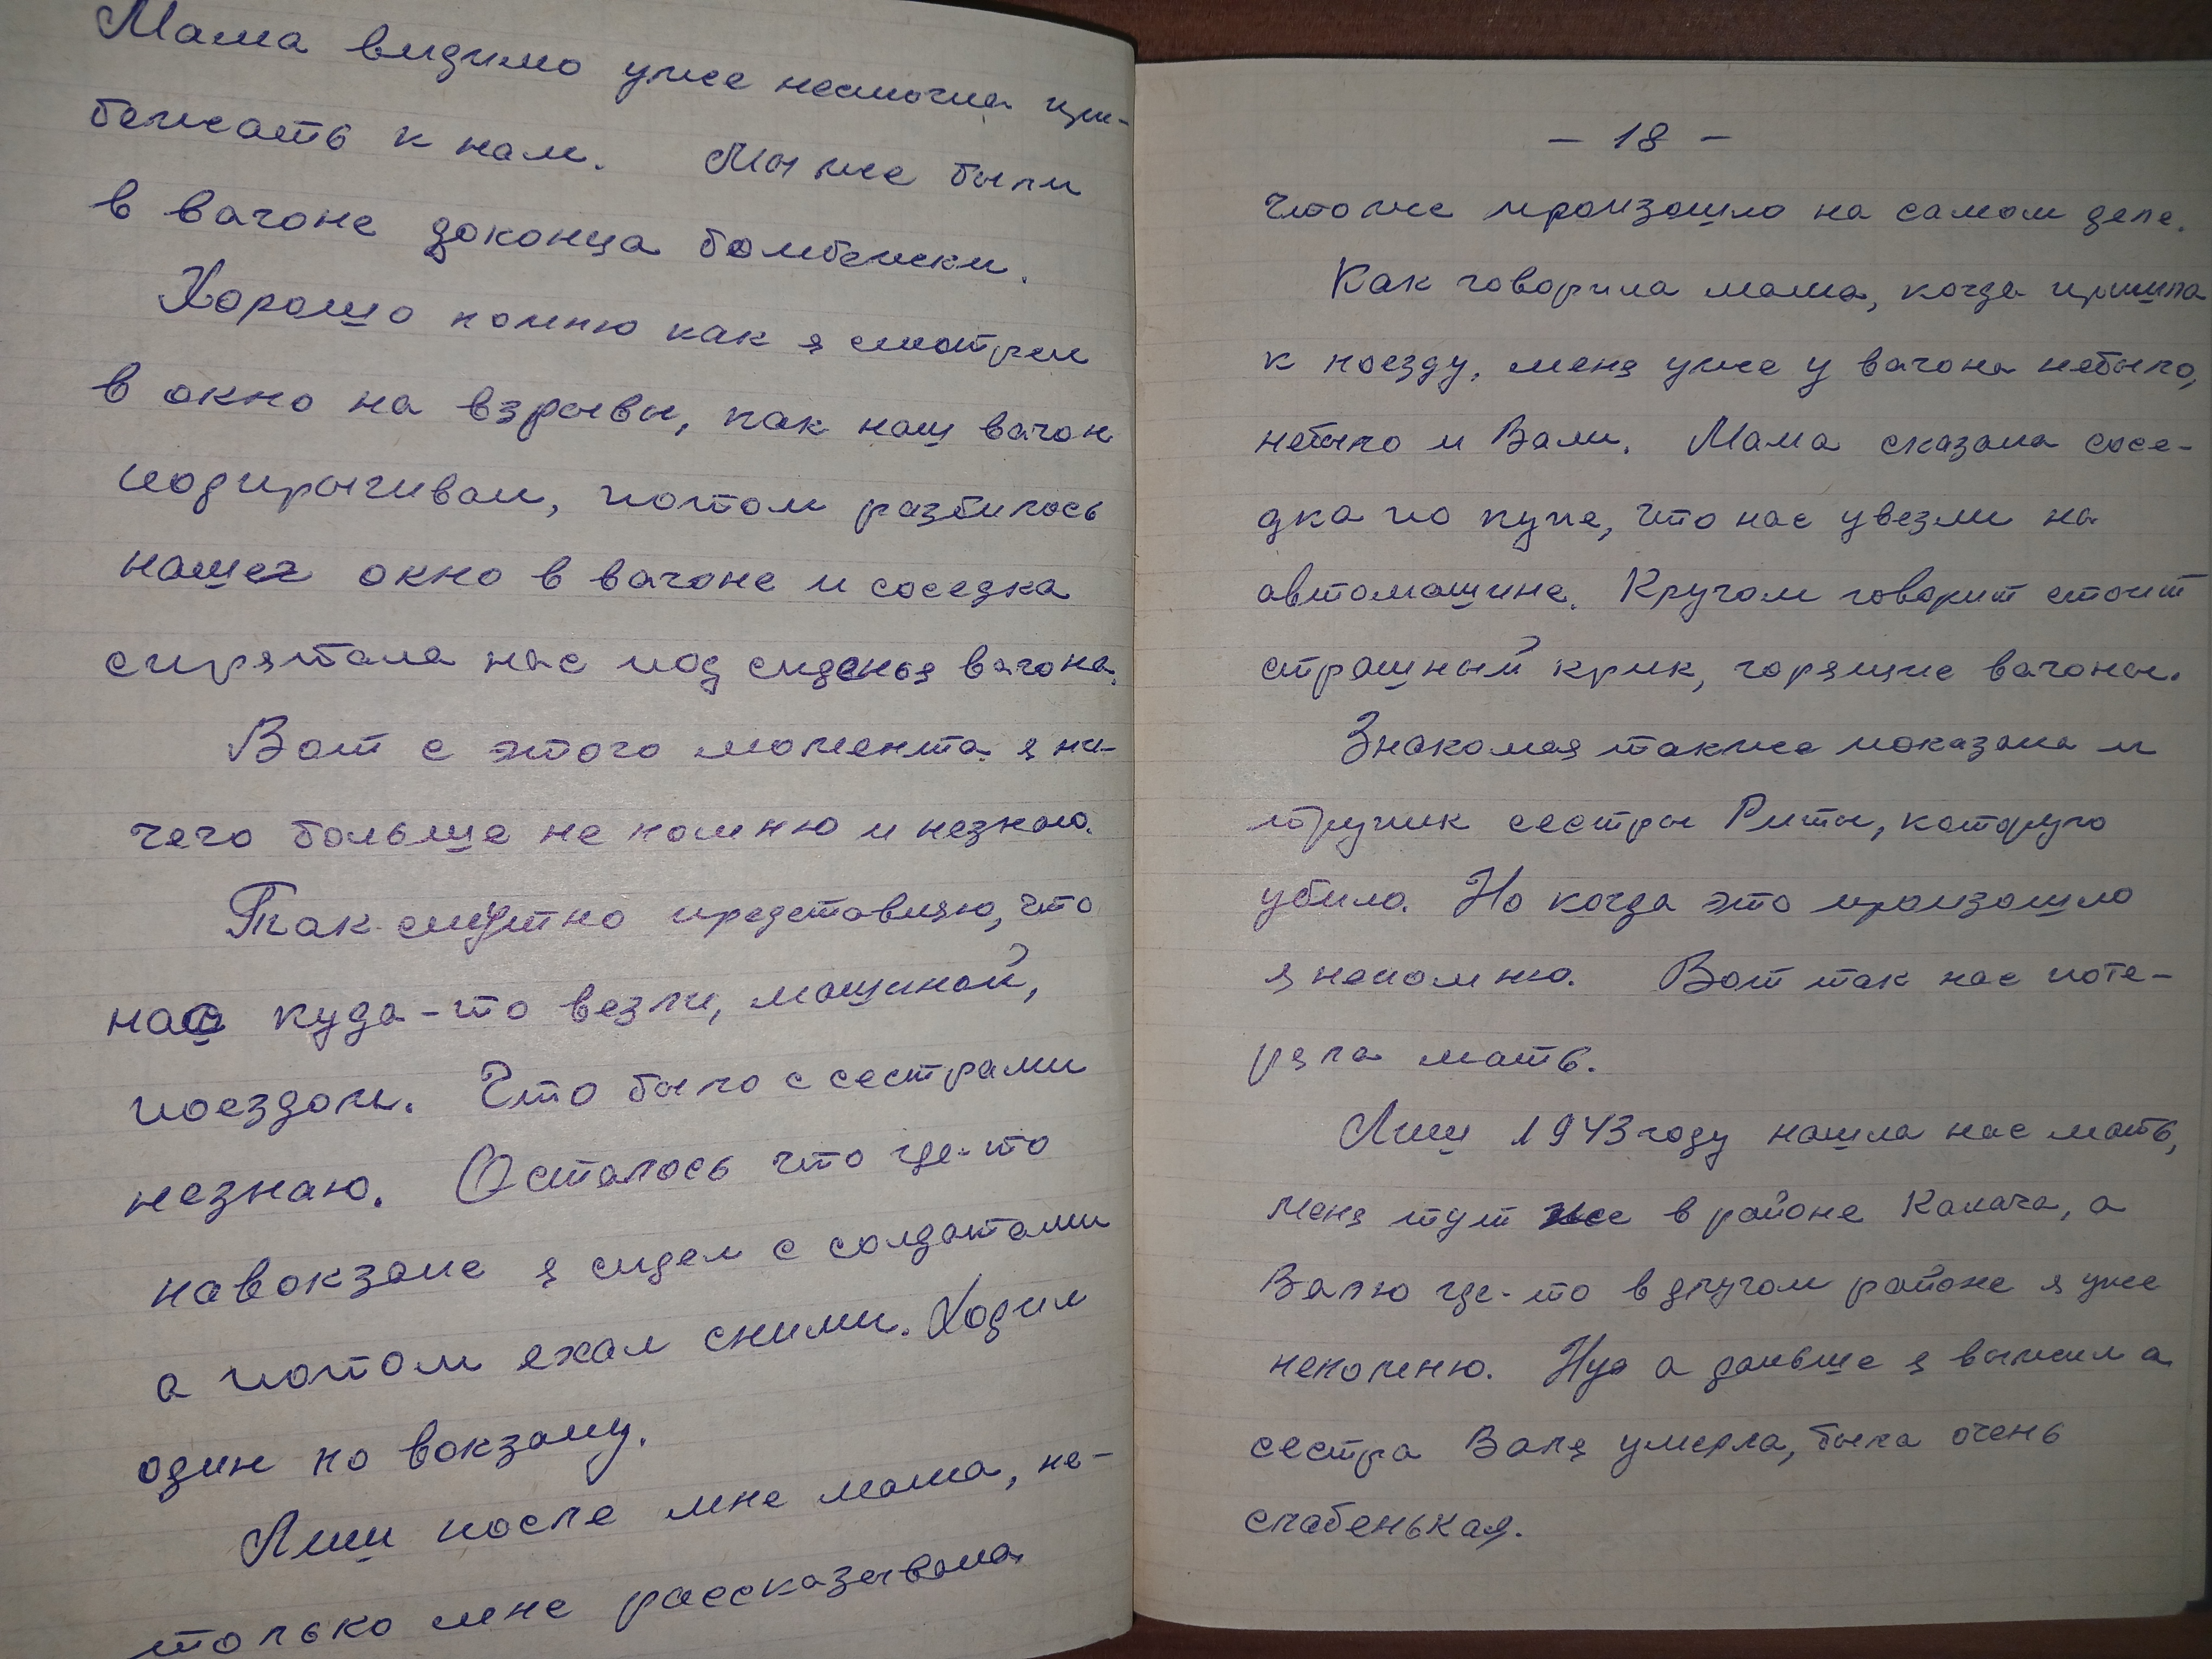 Мама видимо уже несмогла при-
бежать к нам. Мы же были
в вагоне доконца бомбежки.
Хорошо помню как я смотрел
в окно на взрывы, как наш вагон
подпрыгивал, потом разбилось
нашег окно в вагоне и соседка
спрятала нас под сиденья вагона.
Вот с этого момента я ни-
чего больше не помню и незнаю.
Так смутно представляю, что
нас куда-то везли, машиной,
поездом. Что было с сестрами
незнаю. Осталось что где-то
навокзале я сидел с солдатами
а потом ехал сними. Ходил
один по вокзалу.
Лиш после мне мама, не-
только мне рассказывала
- 18 -
чтоже произошло на самом деле.
Как говорила мама, когда пришла
к поезду, меня уже у вагона небыло,
небыло и Вали. Мама сказала сосе-
дка по купе, что нас увезли на
автомашине. Кругом говорит стоит
страшный крик, горящие вагоны.
Знакомая также показала и
трупик сестры Риты, которую
убило. Но когда это произошло
я непомню. Вот так нас поте-
ряла мать.
Лиш 1943 году нашла нас мать,
меня тут же в районе Калача, а
Валю где-то в другом районе я уже
непомню. Ну а дальше я выжил а
сестра Валя умерла, была очень
слабенькая.